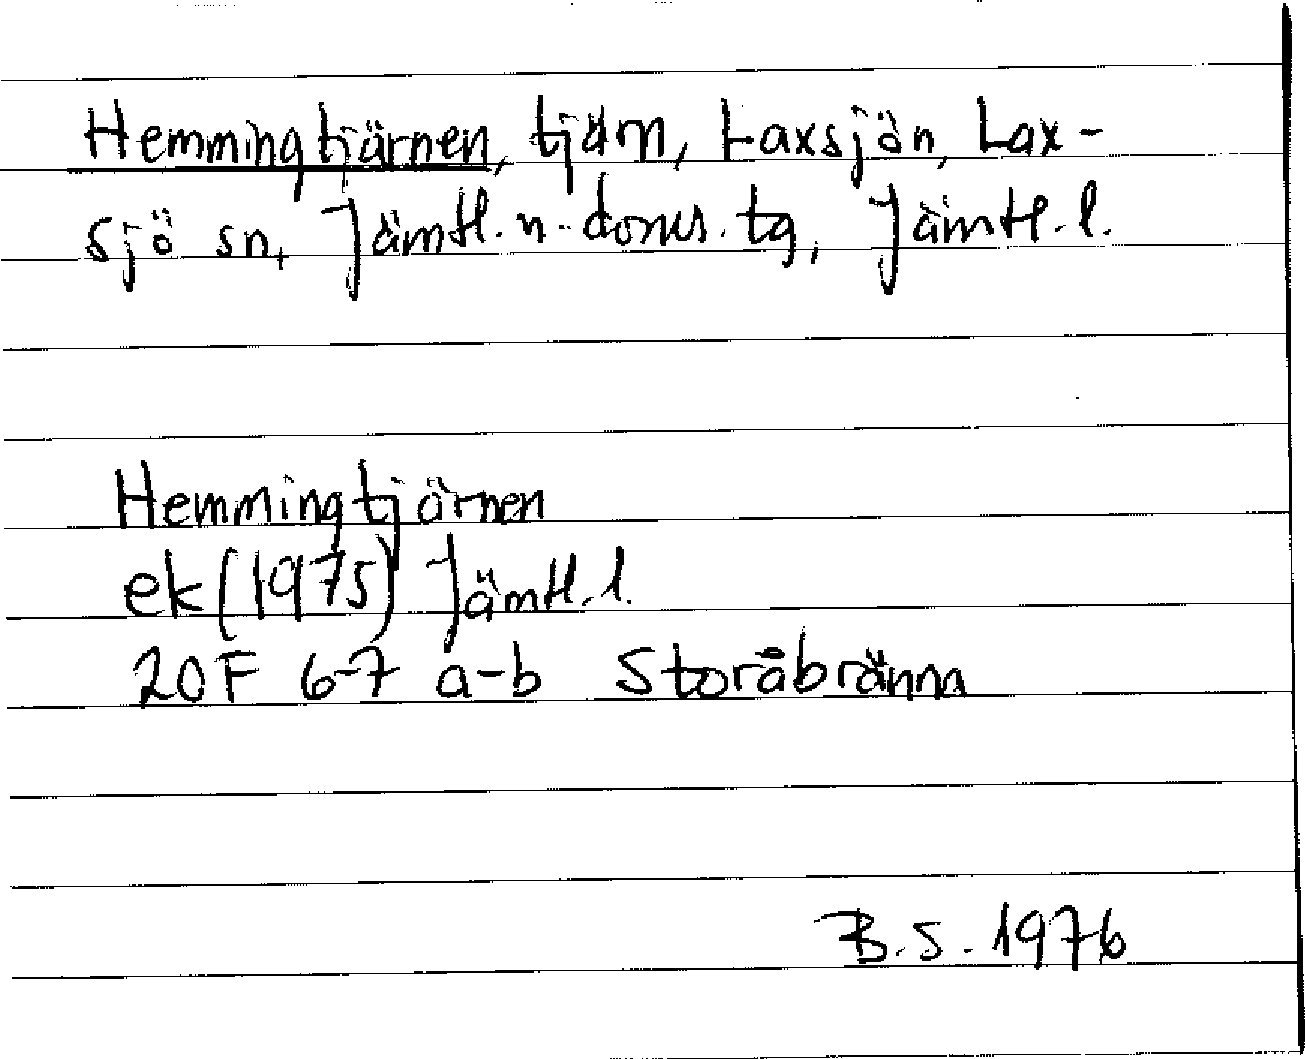 Hemmingtjärnen, tjärn, Laxsjön, Lax-
sjö sn, Jämtl. n. doms. tg, Jämtl. l.
Hemmingtjärnen
ek (1975) Jämtl. l.
20F 6-7 a-b Storåbränna
B.S. 1976